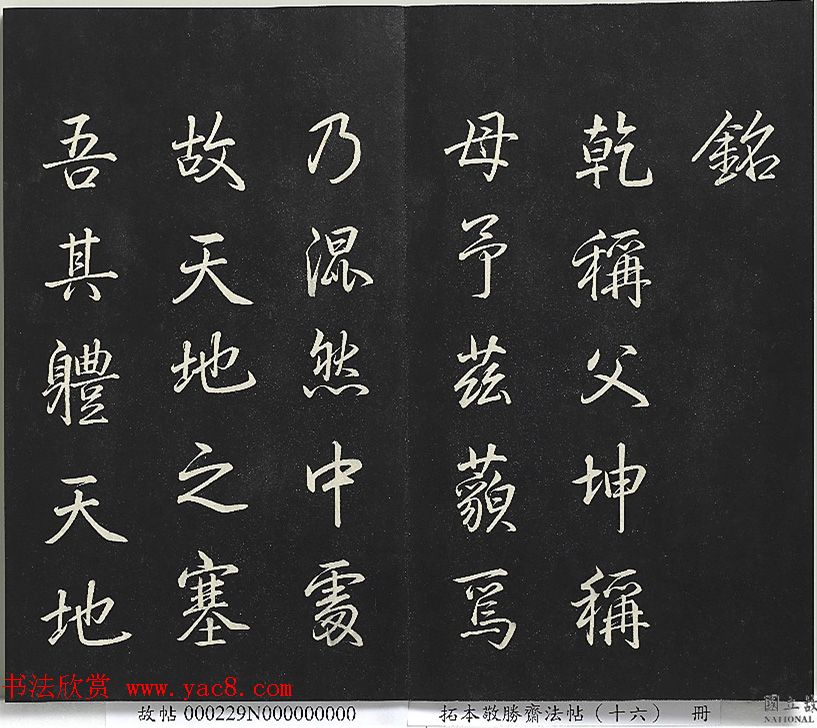 銘
乾稱父坤稱
母予茲藐焉
乃混然中處
故天地之塞
吾其體天地
书法欣赏 www.yac8.com
故帖 000229N000000000
拓本敬勝齋法帖（十六） 冊
國立故
NATIONAL